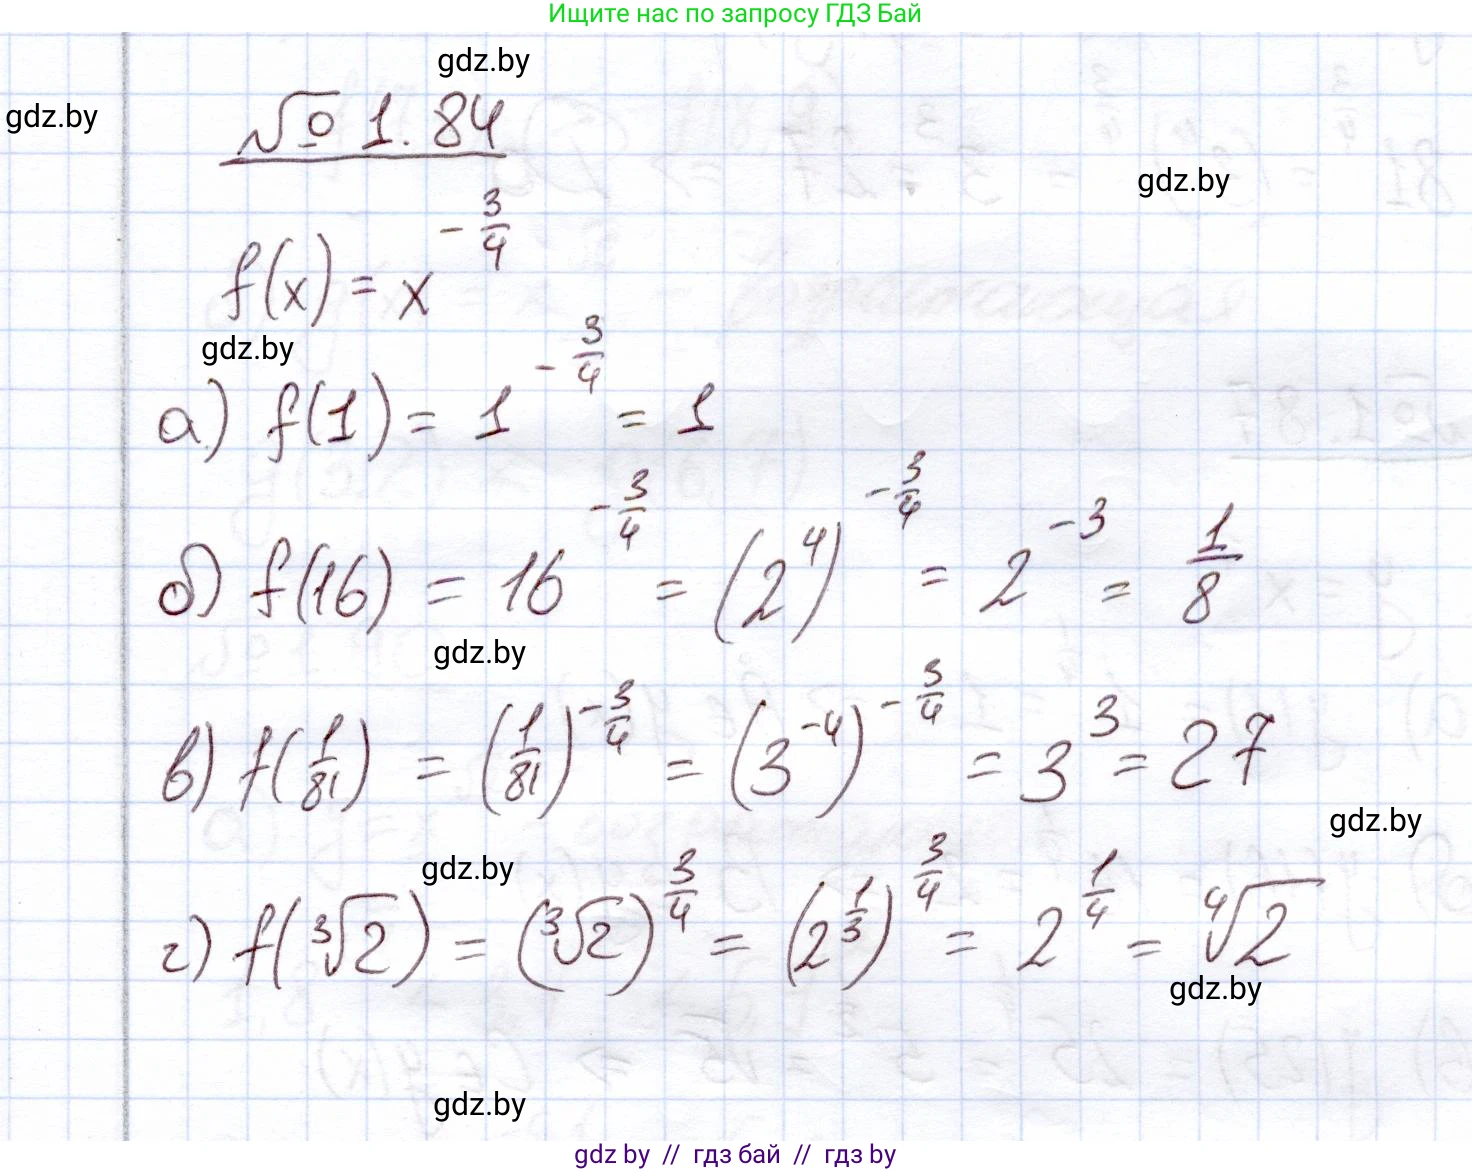 Ищите нас по запросу ГДЗ Бай
gdz.by
gdz.by
№ 1.84
gdz.by
f(x) = x^{-3/4}
gdz.by
а) f(1) = 1^{-3/4} = 1
б) f(16) = 16^{-3/4} = (2^4)^{-3/4} = 2^{-3} = 1/8
gdz.by
в) f(1/81) = (1/81)^{-3/4} = (3^{-4})^{-3/4} = 3^3 = 27
gdz.by
gdz.by
г) f(∛2) = (∛2)^{3/4} = (2^{1/3})^{3/4} = 2^{1/4} = ∜2
gdz.by
gdz.by
gdz by // гдз бай // гдз by